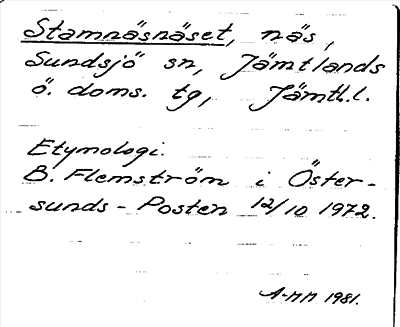 Stamnäsnäset, näs,
Sundsjö sn, Jämtlands
ö. doms. tg, Jämtl.l.
Etymologi.
B. Flemström i Öster-
sunds-Posten 12/10 1972.
A-MM 1981.